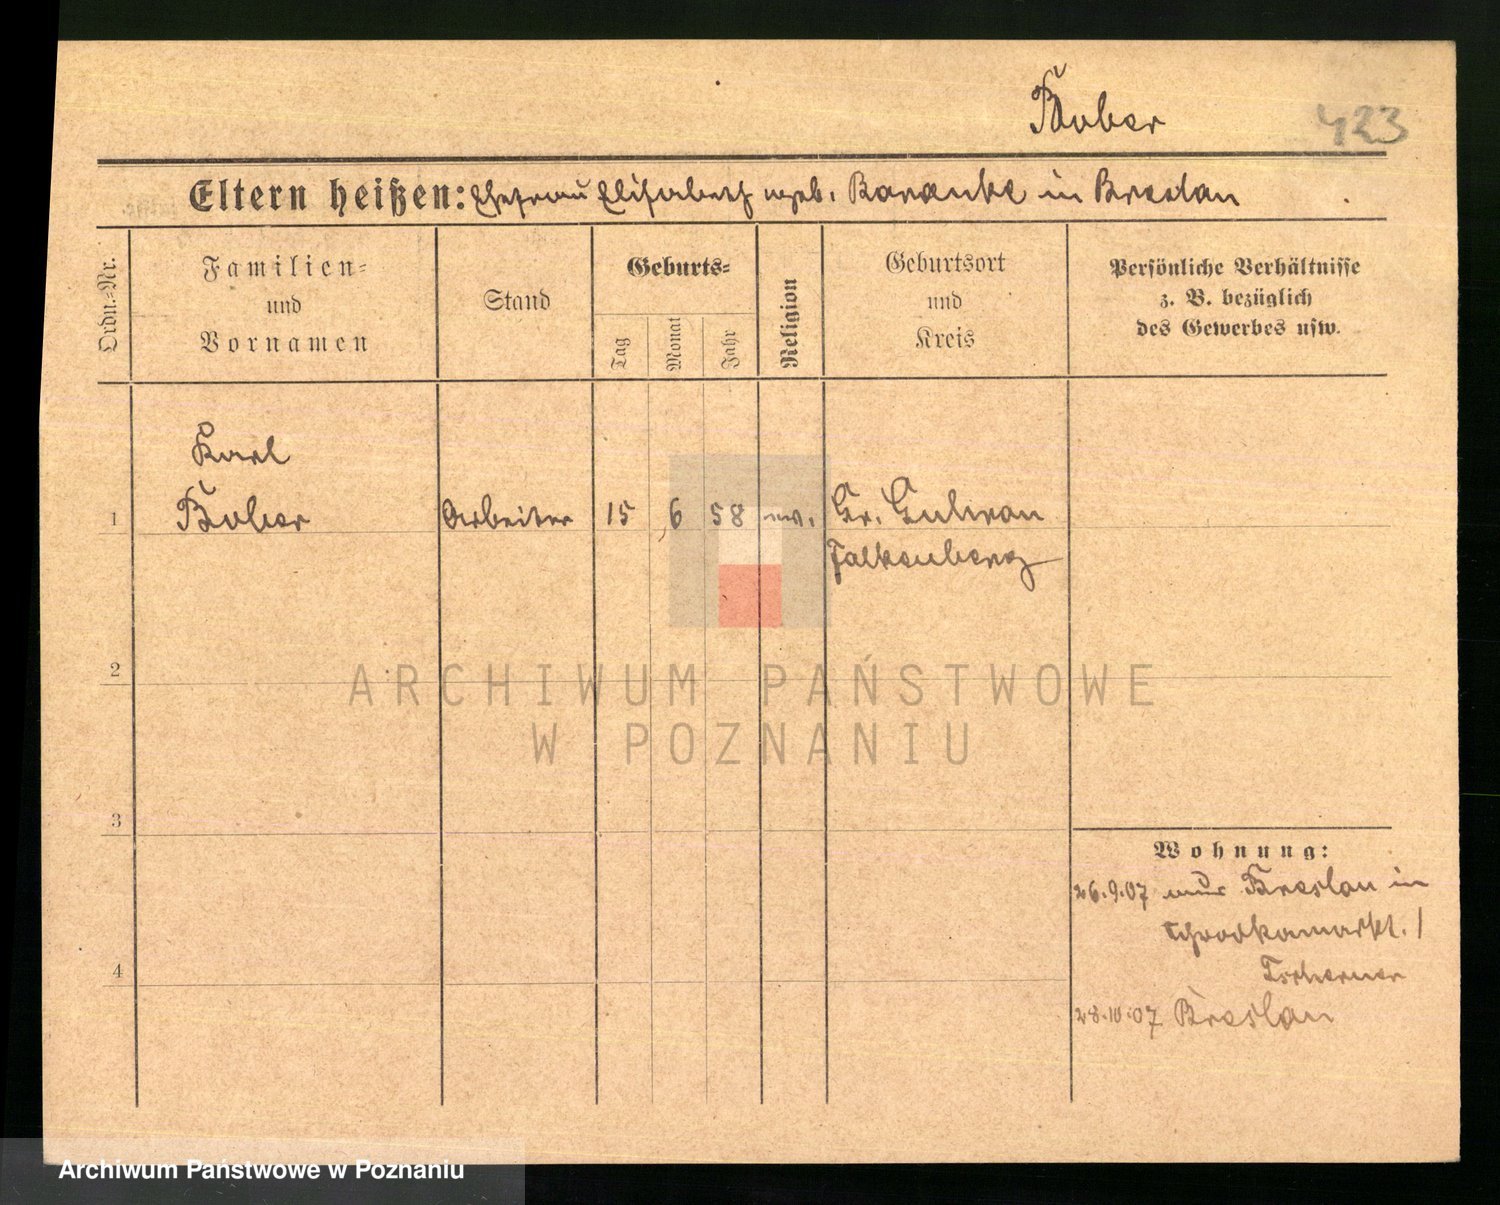 Bober
423
Eltern heißen: Ehefrau Elisabeth geb. in Breslau
Ordn.-Nr.
Familien-
und
Vornamen
Stand
Geburts-
Tag
Monat
Jahr
Religion
Geburtsort
und
Kreis
Persönliche Verhältnisse
z. B. bezüglich
des Gewerbes usw.
Karl
1 Bober Arbeiter 15 6 58 ev. Gr. Guhrau
Falkenberg
2
ARCHIWUM PAŃSTWOWE
W POZNANIU
3
Wohnung:
26.9.07 aus Breslau in
4
28.10.07 Breslau
Archiwum Państwowe w Poznaniu